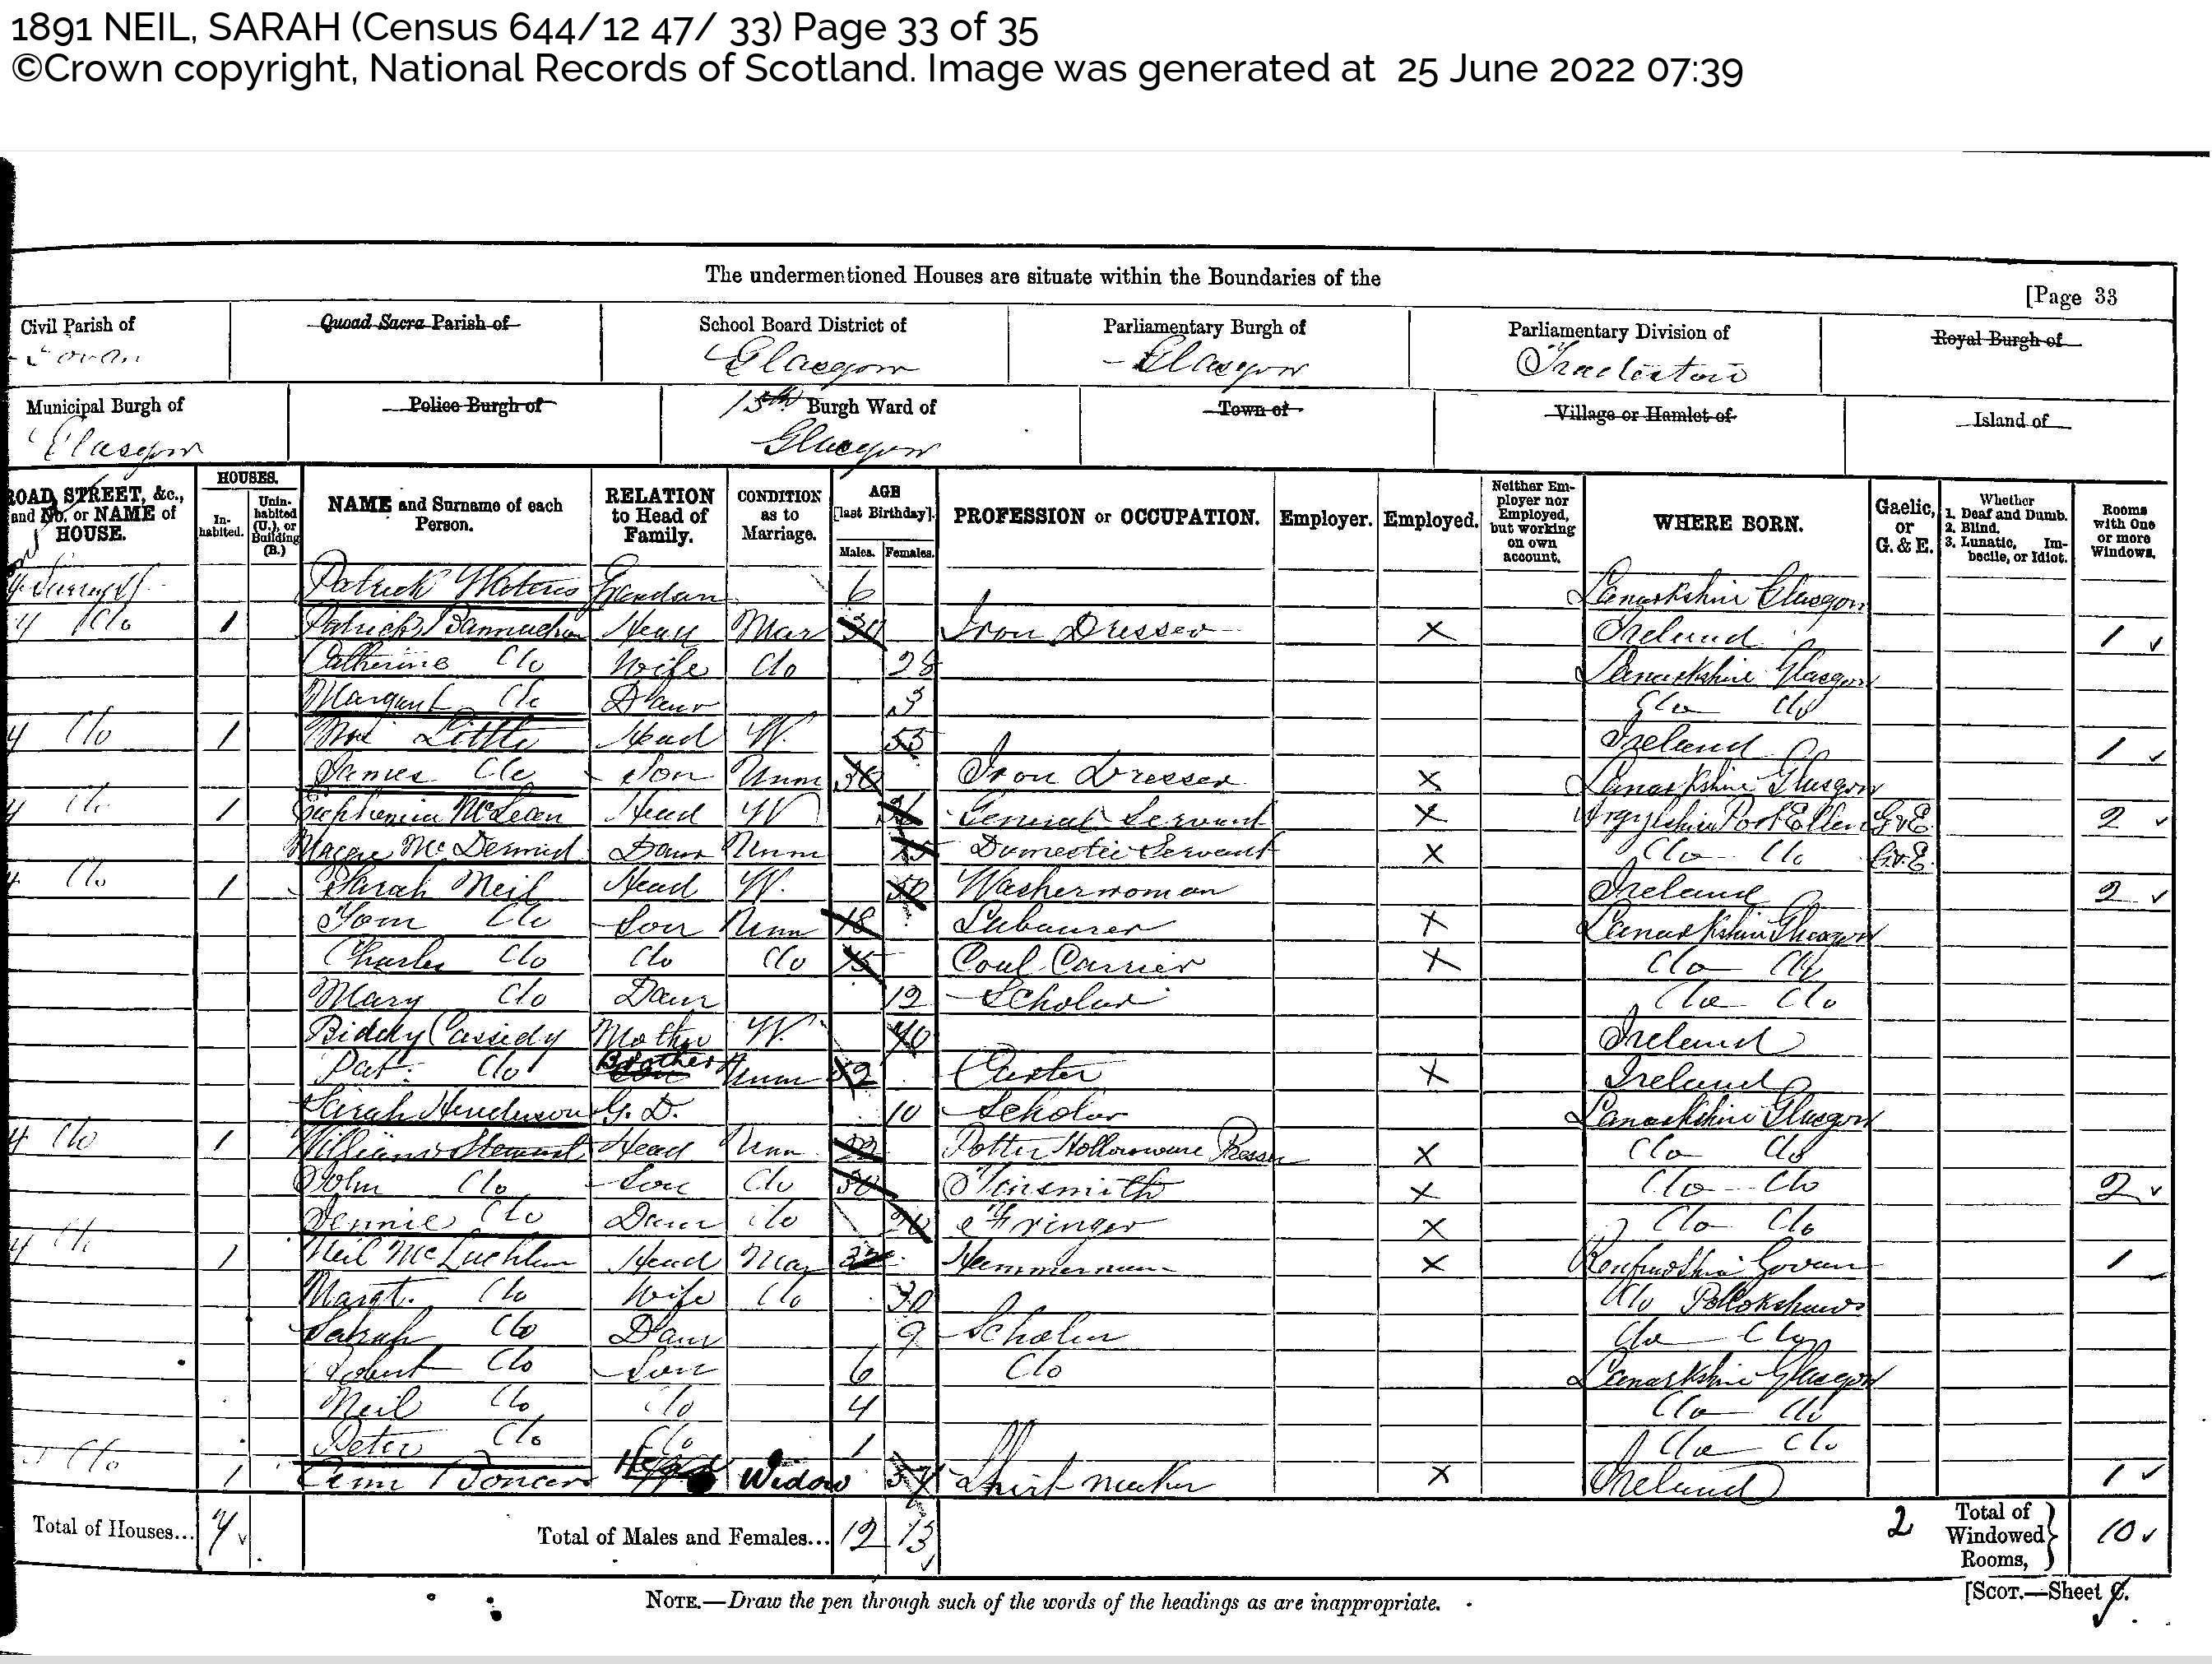 1891 NEIL, SARAH (Census 644/12 47/ 33) Page 33 of 35
©Crown copyright, National Records of Scotland. Image was generated at 25 June 2022 07:39
The undermentioned Houses are situate within the Boundaries of the
[Page 33
Civil Parish of Quoad Sacra Parish of School Board District of Parliamentary Burgh of Parliamentary Division of Royal Burgh of
Govan Glasgow Glasgow Tradeston
Municipal Burgh of Police Burgh of 15th Burgh Ward of Town of Village or Hamlet of Island of
Glasgow Glasgow
ROAD, STREET, &c., and No. or NAME of HOUSE. HOUSES. Inhabited. Uninhabited (U.), or Building (B.) NAME and Surname of each Person. RELATION to Head of Family. CONDITION as to Marriage. AGE [last Birthday]. Males. Females. PROFESSION or OCCUPATION. Employer. Employed. Neither Employer nor Employed, but working on own account. WHERE BORN. Gaelic, or G. & E. Whether 1. Deaf and Dumb. 2. Blind. 3. Lunatic, Imbecile, or Idiot. Rooms with One or more Windows.
Patrick Waters Grandson 6 Lanarkshire Glasgow
4 Do 1 Patrick Head Mar Iron Dresser × Ireland 1 ✓
Catherine Do Wife Do 28 Lanarkshire Glasgow
Margaret Do Daur 3 Do Do
4 Do 1 Little Head W. 55 Ireland 1 ✓
James Do Son Unm 30 Iron Dresser × Lanarkshire Glasgow
4 Do 1 Euphemia McLean Head W General Servant × Argylshire Port Ellen G&E 2 ✓
Maggie McDermid Daur Unm 15 Domestic Servant × Do Do G&E
4 Do 1 Sarah Neil Head W. 50 Washerwoman Ireland 2 ✓
Tom Do Son Unm 18 Labourer × Lanarkshire Glasgow
Charles Do Do Do 15 Coal Carrier × Do Do
Mary Do Daur 12 Scholar Do Do
Biddy Cassidy Mother W. 70 Ireland
Pat. Do Brother Unm Carter × Ireland
Sarah Henderson G. D. 10 Scholar Lanarkshire Glasgow
4 Do 1 William Stewart Head Unm Potter Hollowware Presser × Do Do
John Do Son Do 30 Tinsmith × Do Do 2 ✓
Jennie Do Daur Do 20 Fringer × Do Do
4 Do 1 Neil McLachlan Head Mar 32 Hammerman × Renfrewshire Govan 1
Margt. Do Wife Do 30 Do Pollokshaws
Sarah Do Daur 9 Scholar Do Do
Robert Do Son 6 Do Lanarkshire Glasgow
Neil Do Do 4 Do Do
Peter Do Do 1 Do Do
Do 1 Head Widow 54 Shirt maker × Ireland 1 ✓
Total of Houses... 7 ✓ Total of Males and Females... 12 13 ✓ 2 Total of Windowed Rooms, 10 ✓
NOTE.—Draw the pen through such of the words of the headings as are inappropriate.
[SCOT.—Sheet C.